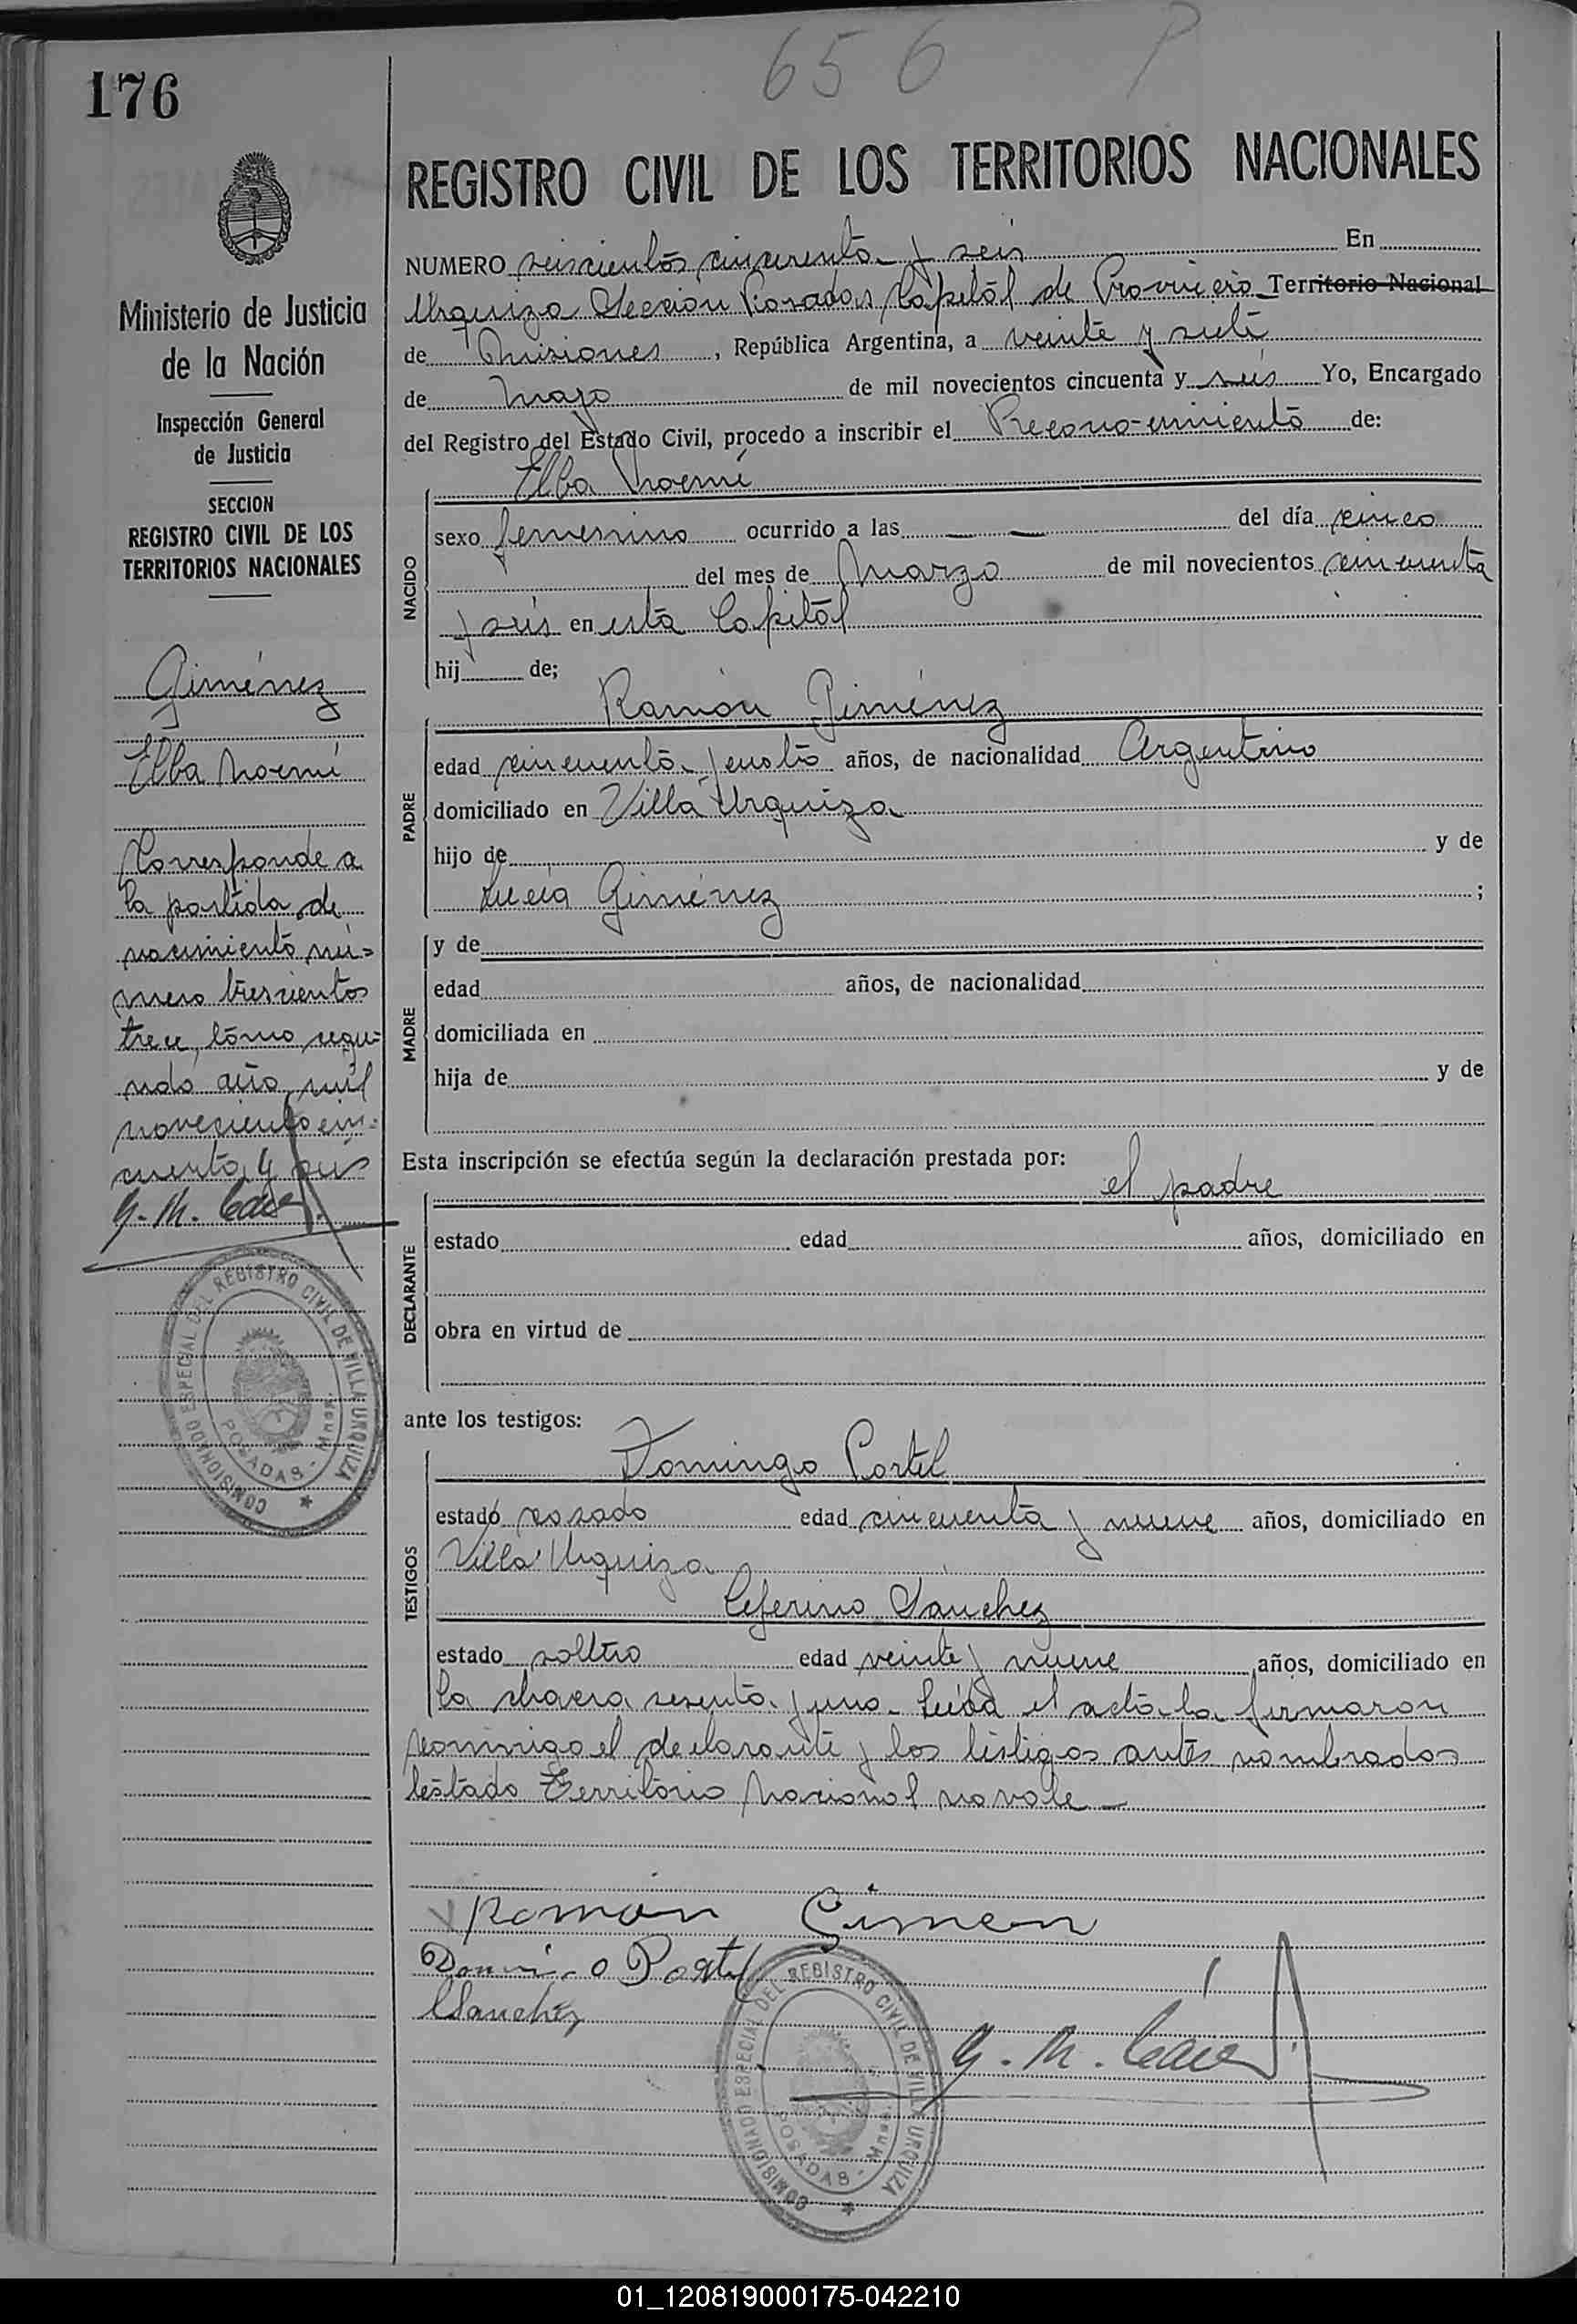 656
176
REGISTRO CIVIL DE LOS TERRITORIOS NACIONALES
NUMERO seiscientos cincuenta y seis En
Urquiza Sección Posadas Capital de Provincia Territorio Nacional
de Misiones, República Argentina, a veinte y siete
de Mayo de mil novecientos cincuenta y seis Yo, Encargado
del Registro del Estado Civil, procedo a inscribir el Reconocimiento de:
Elba Noemí
NACIDO
sexo femenino ocurrido a las — — del día cinco
del mes de Marzo de mil novecientos cincuenta
y seis en esta Capital
hij de;
Ramón Giménez
PADRE
edad cincuenta y cuatro años, de nacionalidad Argentino
domiciliado en Villa Urquiza
hijo de y de
Lucía Giménez ;
MADRE
y de
edad años, de nacionalidad
domiciliada en
hija de y de
Esta inscripción se efectúa según la declaración prestada por:
el padre
DECLARANTE
estado edad años, domiciliado en
obra en virtud de
ante los testigos:
Domingo Portel
TESTIGOS
estado casado edad cincuenta y nueve años, domiciliado en
Villa Urquiza
Ceferino Sánchez
estado soltero edad veinte y nueve años, domiciliado en
la chacra sesenta y uno. Leída el acta la firmaron
conmigo el declarante y los testigos antes nombrados
testado Territorio Nacional no vale —
Ramón Gimen
Portel
CSanchez
G. M.
COMISIONADO ESPECIAL DEL REGISTRO CIVIL DE VILLA URQUIZA
POSADAS - Mnes.
Ministerio de Justicia
de la Nación
Inspección General
de Justicia
SECCION
REGISTRO CIVIL DE LOS
TERRITORIOS NACIONALES
Giménez
Elba Noemí
Corresponde a
la partida de
nacimiento nú=
mero trescientos
trece, tomo segu=
ndo año mil
novecientos cin=
cuenta y seis
G. M.
COMISIONADO ESPECIAL DEL REGISTRO CIVIL DE VILLA URQUIZA
POSADAS - Mnes.
01_120819000175-042210